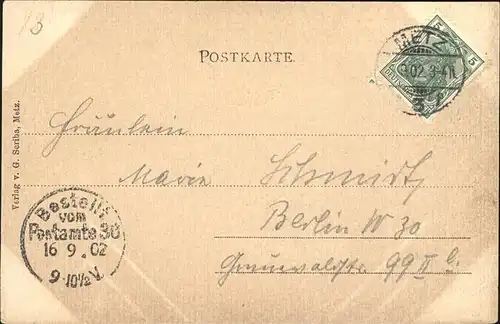 13
POSTKARTE.
METZ
.02 3-4N
3
5
5
Fräulein
Marie Schmidt
Berlin W 30
Grunewaldstr. 99 II l.
Bestellt
vom
Postamte 30
16 9 . 02
9-10½ V.
Verlag v. G. Scriba, Metz.